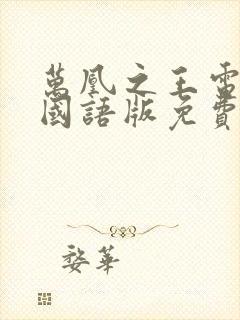 萬凰之王電
國語版免費
婺華